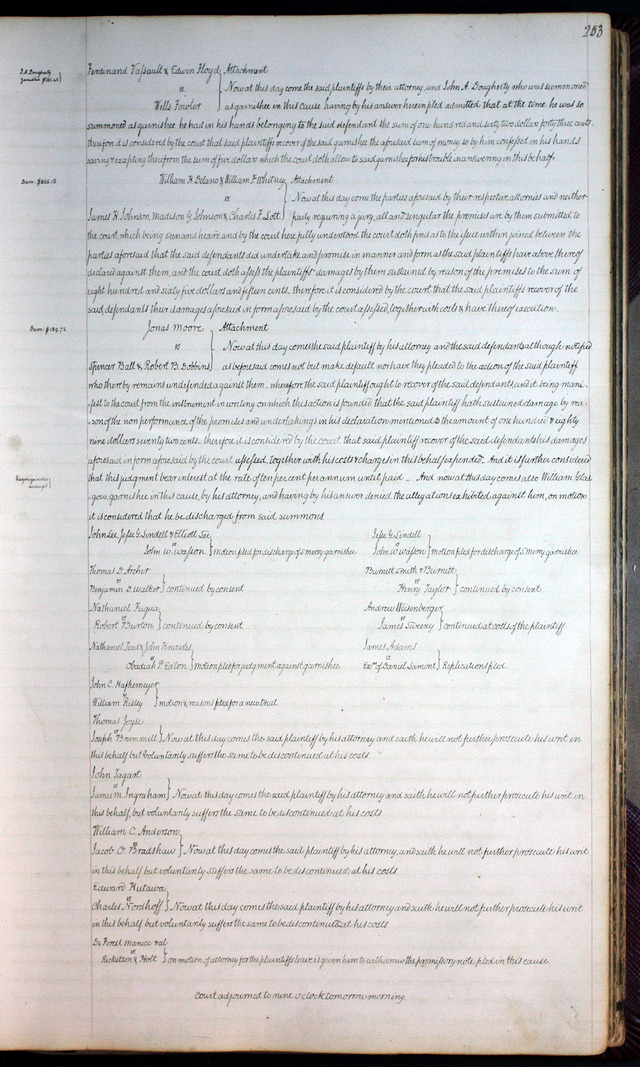 253
J. A. Dougherty
garnishee $162.43
Ferdinand Vassault & Edwin Floyd } Attachment
vs } Now at this day come the said plaintiffs by their attorney, and John A. Dougherty who was summoned
Wells Fowler } as garnishee in this cause having by his answer herein filed admitted that at the time he was so
summoned as garnishee he had in his hands belonging to the said defendant the sum of one hundred and sixty two dollars forty three cents.
therefore it is considered by the court that said plaintiffs recover of the said garnishee the aforesaid sum of money so by him confessed in his hands
saving & excepting therefrom the sum of five dollars which the court doth allow to said garnishee for his trouble in answering in this behalf
Dam: $865.15
William H. Delano & William F. Whitney } Attachment
vs } Now at this day come the parties aforesaid by their respective attornies and neither
James H. Johnson, Madison G. Johnson & Charles F. Lott } party requiring a jury, all and singular the premises are by them submitted to
the court, which being seen and heard and by the court here fully understood the court doth find as to the issue within joined between the
parties aforesaid that the said defendants did undertake and promise in manner and form as the said plaintiffs have above thereof
declared against them, and the court doth assess the plaintiffs damages by them sustained by reason of the premises to the sum of
eight hundred and sixty five dollars and fifteen cents. therefore it is considered by the court that the said plaintiffs recover of the
said defendants their damages aforesaid in form aforesaid by the court assessed, together with costs & have thereof execution.
Dam: $189.72
Jonas Moore } Attachment
vs } Now at this day comes the said plaintiff by his attorney and the said defendants although notified
Spencer Ball & Robert B. Dobbins } as aforesaid comes not but make default nor have they pleaded to the action of the said plaintiff
who thereby remains undefended against them. wherefore the said plaintiff ought to recover of the said defendants, and it being mani-
fest to the court from the instrument in writing on which this action is founded that the said plaintiff hath sustained damage by rea-
son of the non performance of the promises and undertakings in his declaration mentioned to the amount of one hundred & eighty
nine dollars seventy two cents. therefore it is considered by the court that said plaintiff recover of the said defendants his damages
aforesaid in form aforesaid by the court assessed, together with his costs & charges in this behalf expended. And it is further considered
that this judgment bear interest at the rate of ten per cent per annum until paid. And now at this day comes also William Glas-
garnishee
discharged
gow, garnishee in this cause, by his attorney, and having by his answer denied the allegations exhibited against him, on motion
it is considered that he be discharged from said summons
John Lee, Jesse G. Lindell & Elliott Lee
vs
John W. Wasson } motion filed for discharge of S. Merry garnishee
Jesse G. Lindell
vs
John W. Wasson } motion filed for discharge of S. Merry garnishee
Thomas D. Archer
vs
Benjamin D. Walker } continued by consent
Burnett Smith & Burnett
vs
Henry Taylor } continued by consent
Nathaniel Fuqua
vs
Robert Burton } continued by consent
Andrew Weisenberger
vs
James Sweeny } continued at costs of the plaintiff
Nathaniel Tead & John Knowles
vs
Obadiah P. Eaton } motion filed for judgment against garnishee
James Adams
vs
Exrs. of Daniel Lamont } Replications filed
John C. Hafkemeyer
vs
William Risley } motion & reasons filed for a new trial
Thomas Joyle
vs
Joseph Brimmill } Now at this day comes the said plaintiff by his attorney and saith he will not further prosecute his writ in
this behalf but voluntarily suffers the same to be discontinued at his costs
John Tagart
vs
James M. Ingraham } Now at this day comes the said plaintiff by his attorney and saith he will not further prosecute his writ in
this behalf, but voluntarily suffers the same to be discontinued at his costs
William C. Anderson
vs
Jacob O. Bradshaw } Now at this day comes the said plaintiff by his attorney, and saith he will not further prosecute his writ
in this behalf but voluntarily suffers the same to be discontinued at his costs
Edward Hutawa
vs
Charles Nordhoff } Now at this day comes the said plaintiff by his attorney and saith he will not further prosecute his writ
in this behalf but voluntarily suffers the same to be discontinued at his costs
De Forest & al
vs
Ricketson & Holt } on motion of attorney for the plaintiffs leave is given him to withdraw the promissory note filed in this cause
Court adjourned to nine o'clock tomorrow morning.